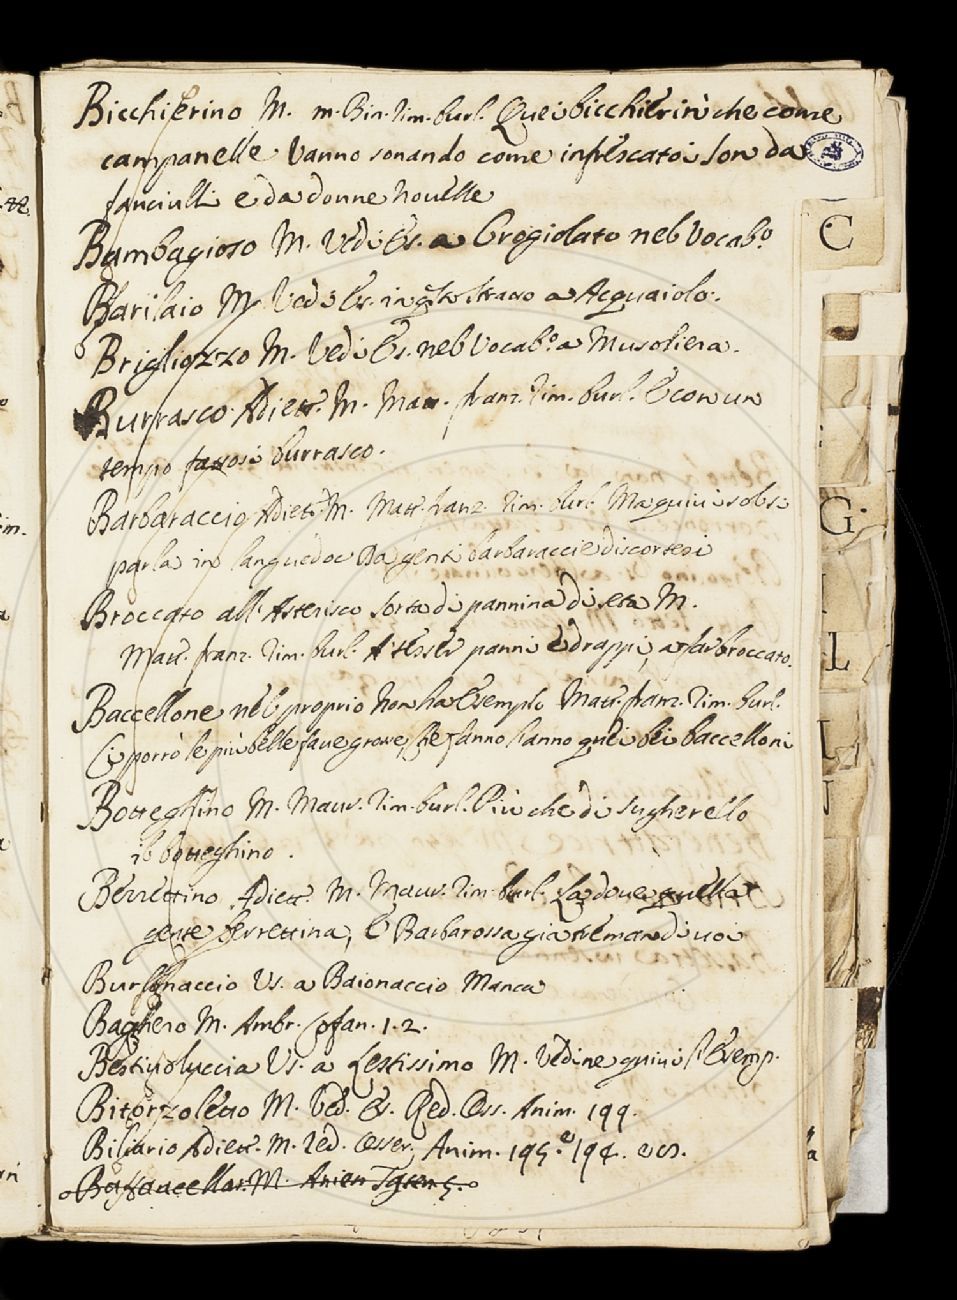 Bicchierino M. m. Bin. rim. burl. Quei bicchierini che come
campanelle Vanno sonando come infrescatoi Son da
fanciulli e da donne novelle
Bambagioso M. Vedi Es. a Crogiolato nel Vocab.o
Barilaio M. Vedi Es. in q.to straccio a Acquaiolo.
Brigliozzo M. Vedi Es. nel Vocab.o a Musoliera.
Burrasco Adiett. M. Matt. franz. rim. burl. E con un
tempo burrasco.
Barbaraccio Adiett. M. Matt. franz. rim. burl. Ma quivi sol si
parla in languedoc Da genti barbaraccie discortesi
Broccato all' Asterisco Sorta di pannina di seta M.
Matt. franz. rim. burl. A tesser panni e drappi, a far broccato.
Baccellone nel proprio non ha Esemplo Matt. franz. rim. burl.
Ci porrò le più belle fave grosse, Che fanno quei bei baccelloni
Botteghino M. Maur. rim. burl. Più che di sugherello
il botteghino.
Berrettino Adiett. M. Maur. rim. burl. La dove quella
gente berrettina, E Barbarossa già treman di voi
Burlonaccio Vs. a Baionaccio Manca
Baghero M. Ambr. Cofan. 1. 2.
Bestivoluccia Vs. a Lestissimo M. Vedine quivi l'Esemp.
Bitorzoletto M. Ved. Es. Red. Oss. Anim. 199.
Biliario Adiett. M. Ved. Osser. Anim. 195. e 194. es.
M.
C
G
L
L